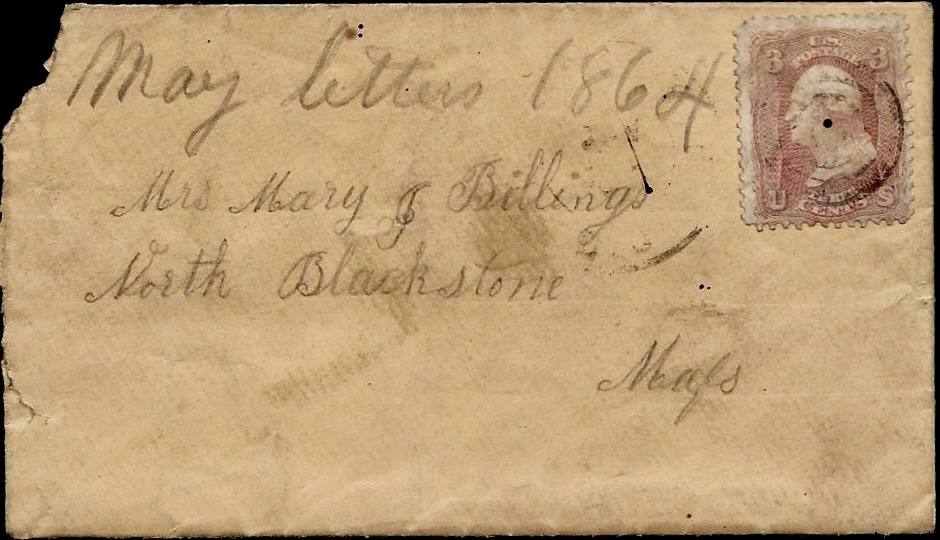 May letters 1864
3 U.S. 3
POSTAGE
U CENTS S
Mrs Mary J Billings
North Blackstone
Maſs